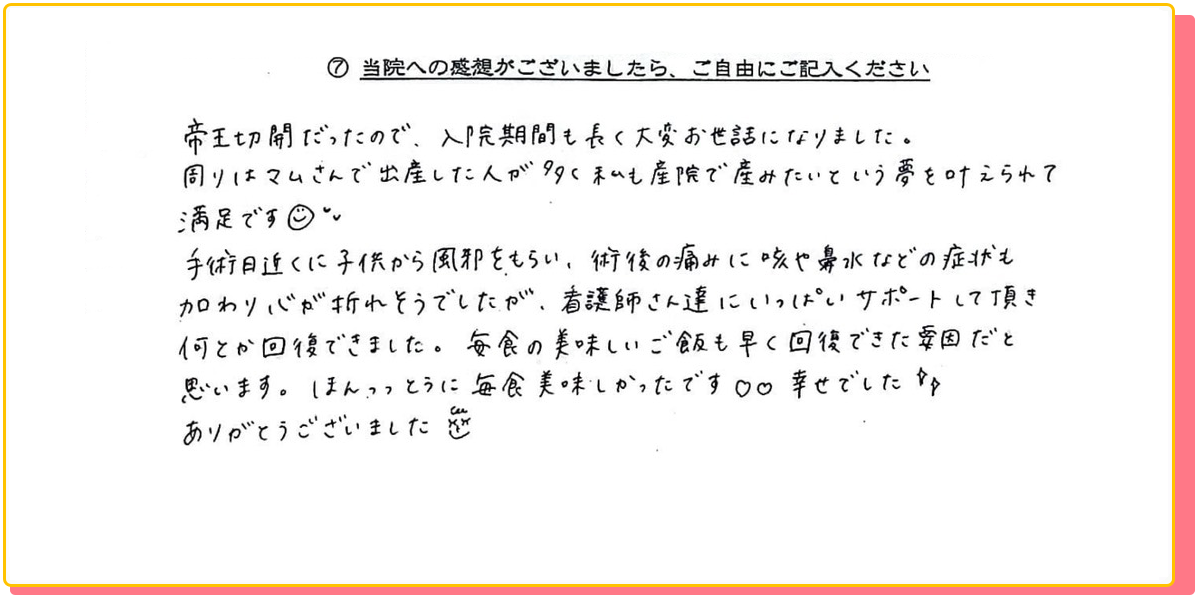 ⑦ 当院への感想がございましたら、ご自由にご記入ください
帝王切開だったので、入院期間も長く大変お世話になりました。
周りはマムさんで出産した人が多く私も産院で産みたいという夢を叶えられて
満足です
手術日近くに子供から風邪をもらい、術後の痛みに咳や鼻水などの症状も
加わり心が折れそうでしたが、看護師さん達にいっぱいサポートして頂き
何とか回復できました。毎食の美味しいご飯も早く回復できた要因だと
思います。ほんっっとうに毎食美味しかったです♡♡幸せでした
ありがとうございました